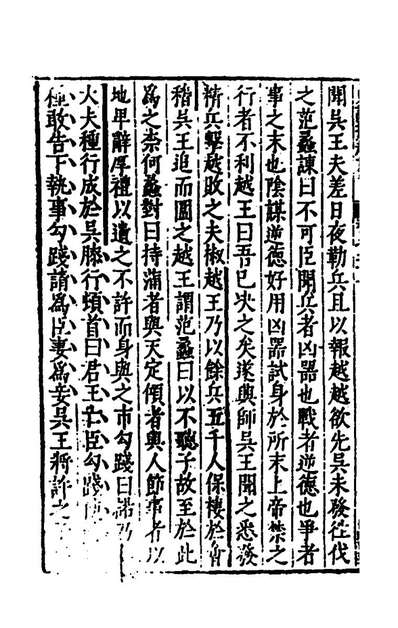 聞吳王夫差日夜勒兵且以報越越欲先吳未發往伐
之范蠡諫曰不可臣聞兵者凶器也戰者逆德也爭者
事之末也陰謀逆德好用凶器試身於所末上帝禁之
行者不利越王曰吾已決之矣遂興師吳王聞之悉發
精兵擊越敗之夫椒越王乃以餘兵五千人保棲於會
稽吳王追而圍之越王謂范蠡曰以不聽子故至於此
為之柰何蠡對曰持滿者與天定傾者與人節事者以
地卑辭厚禮以遺之不許而身與之市勾踐曰諾乃
大夫種行成於吳膝行頓首曰君王亡臣勾踐
種敢告下執事勾踐請為臣妻為妾吳王將許之